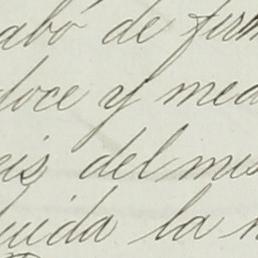 abó de firm
doce y med
eis del mis
uida la n